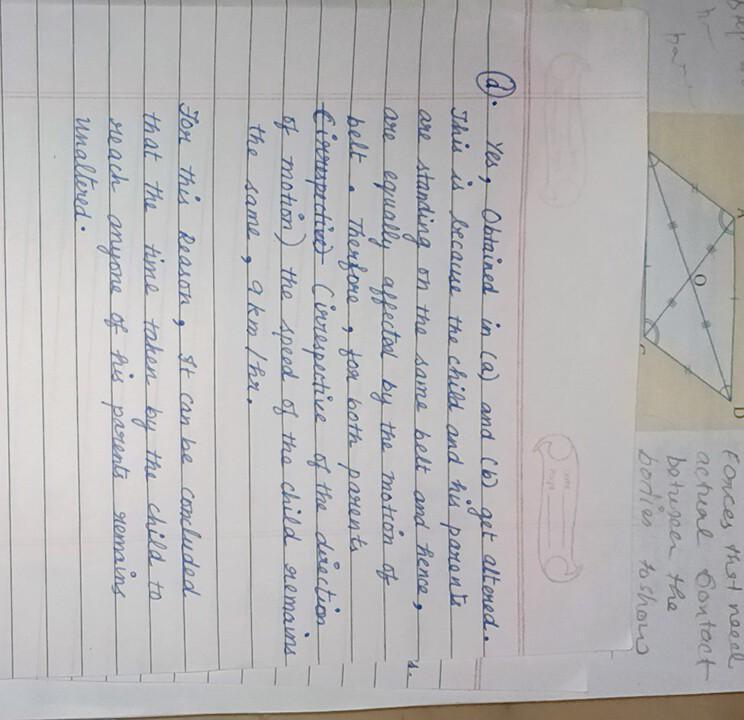 (d). Yes, Obtained in (a) and (b) get altered.
This is because the child and his parents
are standing on the same belt and hence,
are equally affected by the motion of
belt. Therefore, for both parents
(irrespective of the direction
of motion) the speed of the child remains
the same, 9 km/hr.
For this Reason, It can be concluded
that the time taken by the child to
reach anyone of his parents remains
unaltered.
s.
A
D
O
C
Forces that need
actual Contact
between the
bodies to show